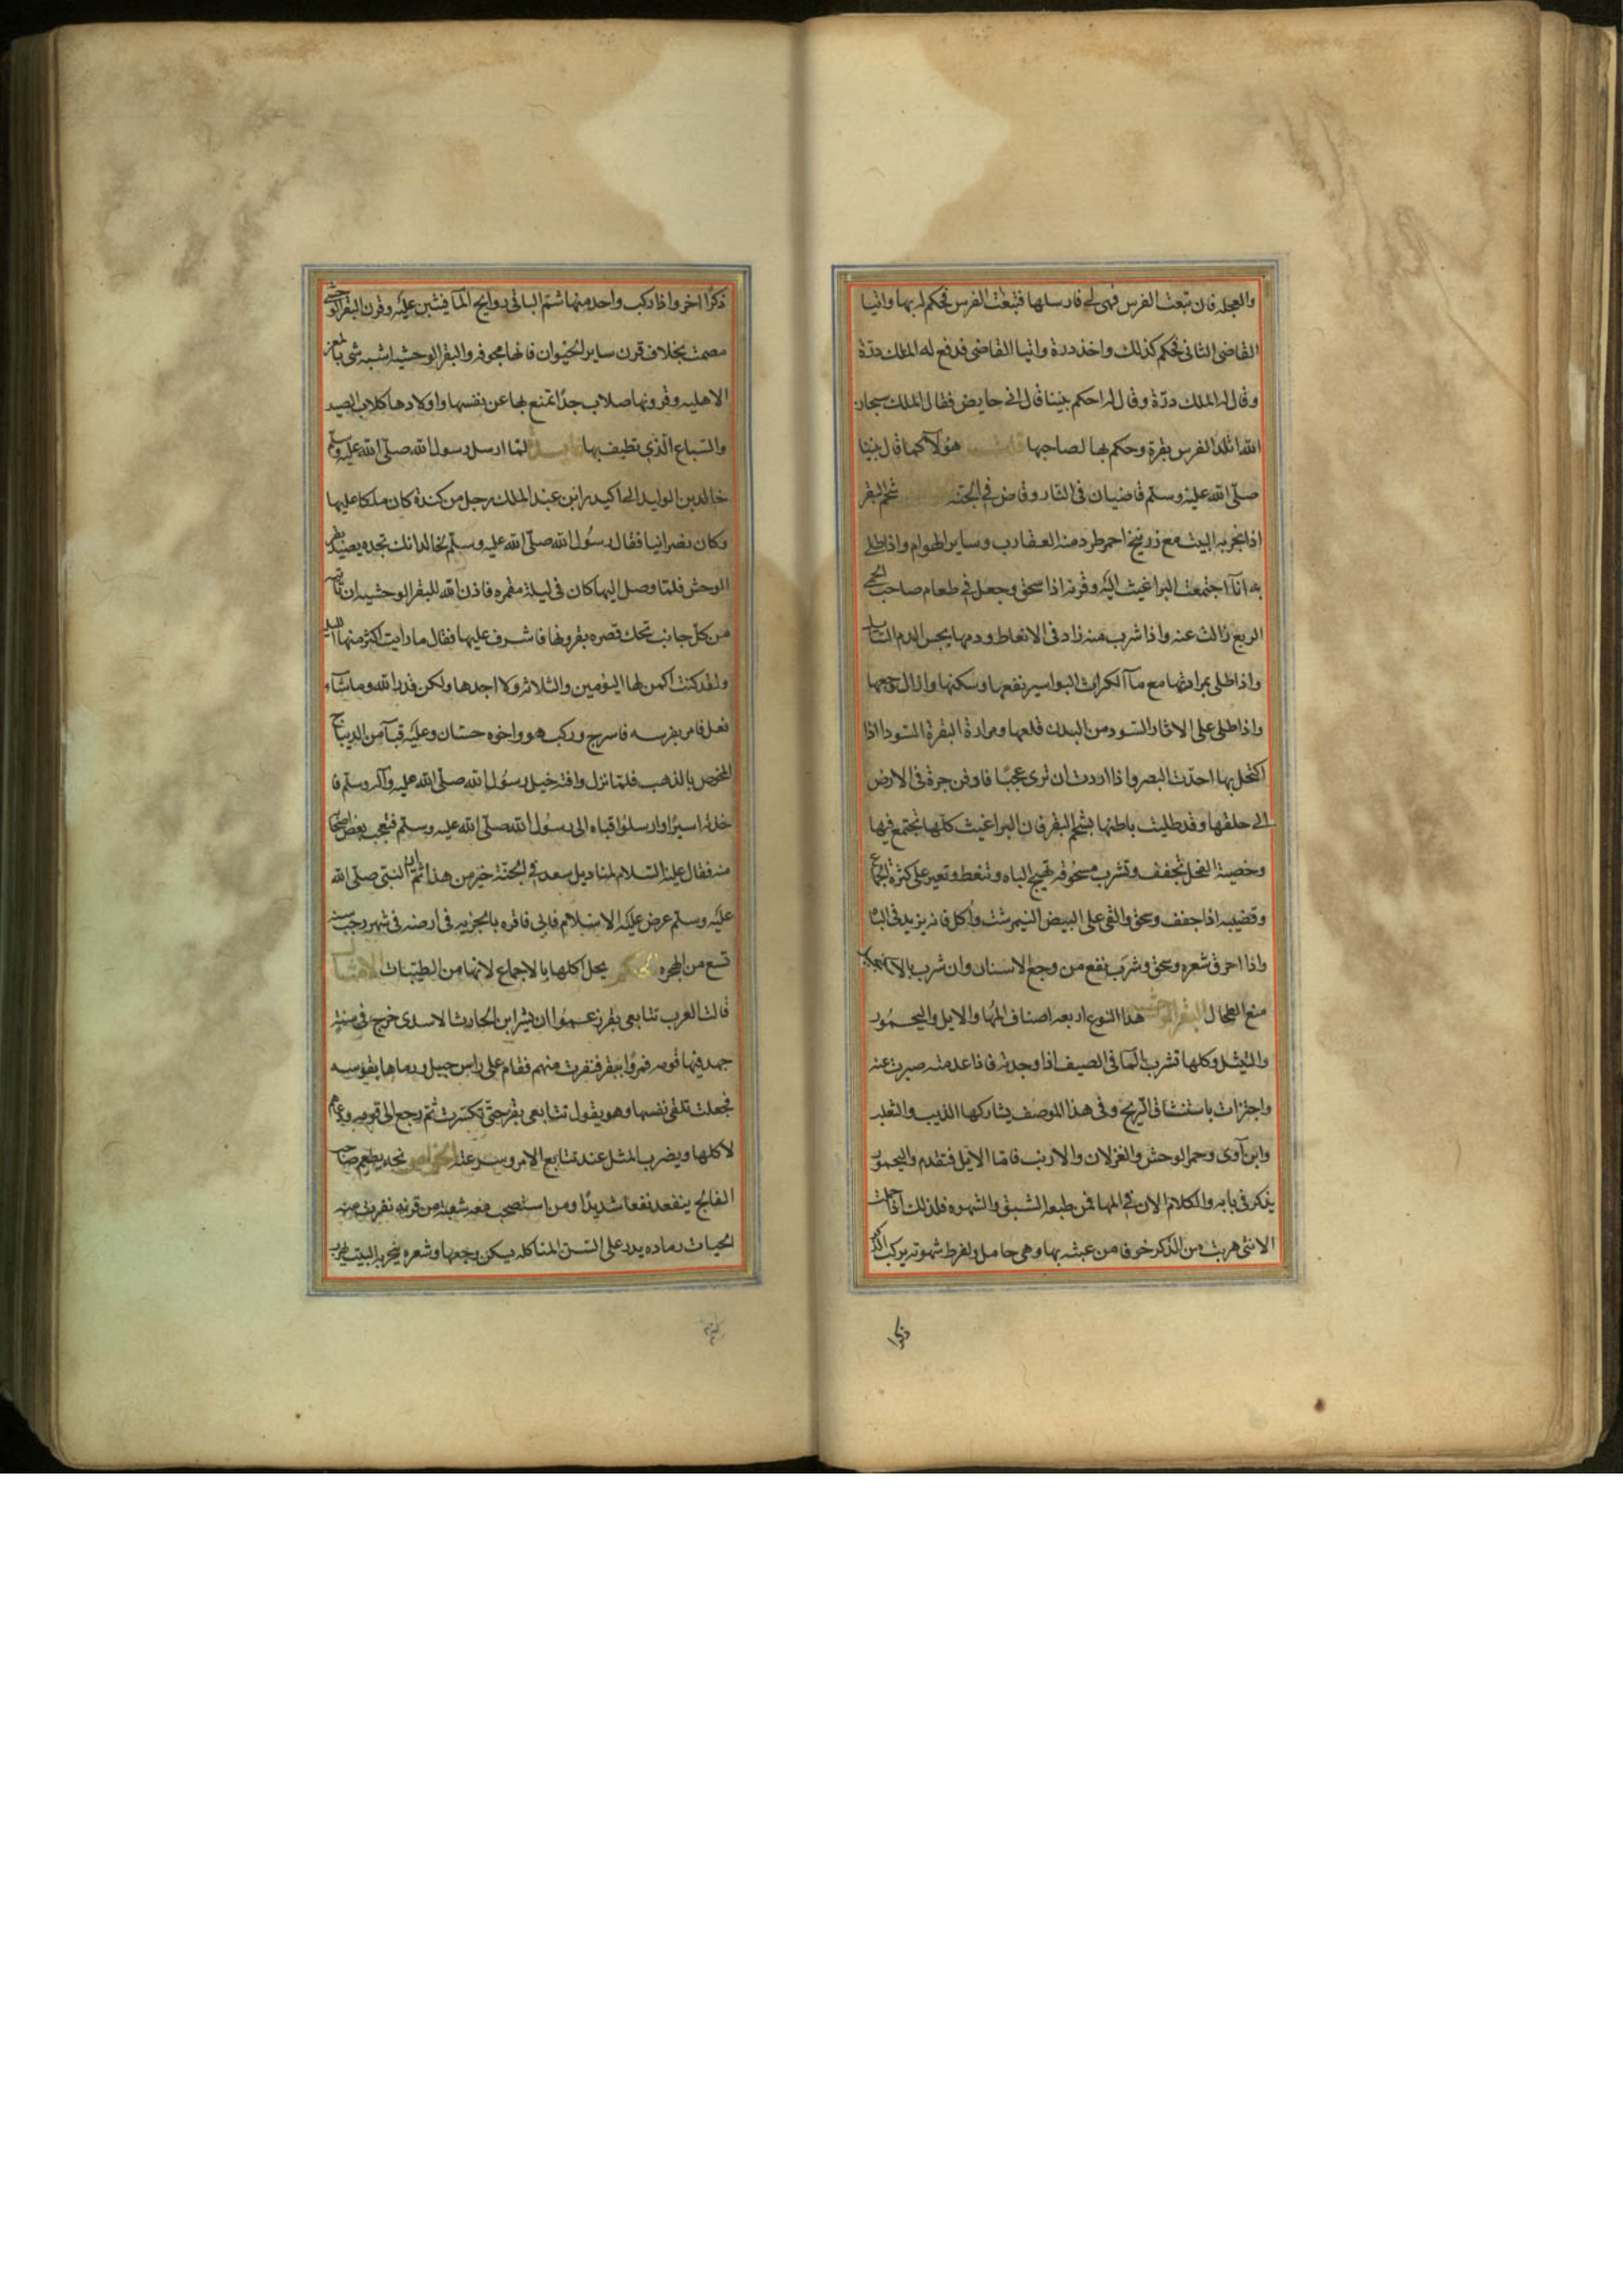 والعجله فان تبعت الفرس فهى لى فارسلها فتبعت الفرس فحكم له بها واتيا
القاضى الثانى فحكم كذلك واخذ درة واتيا القاضى فدفع له الملك درّة
وقال له الملك درّة وقال له احكم بيننا قال انى حايض فقال الملك سبحان
الله اتلد الفرس بقرة وحكم بها لصاحبها قلت هؤلآ كما قال نبينا
صلّى الله عليه وسلّم قاضيان فى النار وقاض فى الجنّه شحم البقر
اذا بخر به البيت مع زرنيخ احمر طرد منه العقارب وساير الهوام واذا طلى
به انآ اجتمعت البراغيث اليه وقرنه اذا سحق وجعل فى طعام صاحب الحمى
الربع زالت عنه واذا شرب منه زاد فى الانعاظ ودمها يحبس الدم السايل
واذا طلى بمرارتها مع مآ الكراث البواسير نفعها وسكنها وازال وجعها
واذا طلى على الاثار السود من البدن قلعها ومرارة البقرة السودا اذا
اكتحل بها احدّت البصر واذا اردت ان ترى عجبًا فادفن جرة فى الارض
الى حلقها وقد طليت باطنها بشحم البقر فان البراغيث كلها تجتمع فيها
وخصية الفحل تجفف وتشرب مسحوقه تهيج الباه وتنعظ وتعين على كثرة الجماع
وقضيبه اذا جفف وسحق والقى على البيض النيمرشت واُكل فانه يزيد فى الباه
واذا احرق شعره وسحق وشرب نفع من وجع الاسنان وان شرب بالا
منع الطحال البقر الوحشيه هذا النوع اربعه اصناف المها والايل واليحمور
والثيثل وكلها تشرب المآ فى الصيف اذا وجدته فاذا عدمته صبرت عنه
واجتزات باستنشاق الريح وفى هذا الوصف يشاركها الذيب والثعلب
وابن آوى وحمر الوحش والغزلان والارنب فامّا الايل فتقدم واليحمور
يذكر فى بابه والكلام الان فى المها فمن طبعه الشبق والشهوه فلذلك اذا حملت
الانثى هربت من الذكر خوفا من عبثه بها وهى حامل ولفرط شهوته يركب الذكر
ذكرًا
ذكرًا اخر واذا ركب واحد منها شمّ الباقى روايح المآ فيثبن عليه وقرن البقر الوحشى
مصمت بخلاف قرن ساير الحيوان فانها مجوفه والبقر الوحشيه اشبه شى بالمعز
الاهليه وقرونها صلاب جدًا تمنع بها عن نفسها واولادها كلاب الصيد
والسباع الّذى تطيف بها لمّا ارسل رسول الله صلّى الله عليه وسلّم
خالد بن الوليد الى اكيدر ابن عبد الملك رجل من كندة كان ملكا عليها
وكان نصرانيا فقال رسُول الله صلّى الله عليه وسلّم لخالد انك تجده يصيد بقر
الوحش فلمّا وصل اليها كان فى ليلة مقمره فاذن الله للبقر الوحشيه ان تاتيه
من كل جانب تحك قصره بقرونها فاشرف عليها فقال ما رايت اكثر منها الليله
ولقد كنت اكمن لها اليومين والثلاثه ولا اجدها ولكن قدر الله وما شآء
فعل فامر بفرسه فاسرج وركب هو واخوه حسّان وعليه قبآ من الديباج
المخوص بالذهب فلمّا نزل وافته خيل رسُول الله صلّى الله عليه وآله وسلّم فا
خذته اسيرًا وارسلوا قباه الى رسُول الله صلّى الله عليه وسلّم فتعجب بعض اصحابه
منه فقال عليه السّلام لمناديل سعد فى الجنّة خير من هذا ثمّ ان النبّى صلّى الله
عليه وسلّم عرض عليه الاسلام فابى فاقره بالجزيه فى ارضه فى شهر رجب سنه
تسع من الهجره الحكم يحل اكلها بالاجماع لانها من الطيّبات الامثال
قالت العرب تتابعى بقر زعموا ان بشر ابن الحارث الاسدى خرج فى سنه
جهد فيها قومه فمروا ببقر فنفرت منهم فقام على راس جبيل ورماها بقوسه
فجعلت تلقى نفسها وهو يقول تتابعى بقر حتّى تكسّرت ثمّ رجع الى قومه ودعاهم
لاكلها ويضرب المثل عند تتابع الامر وسرعته الخواص نحه يطعم صاحب
الفالج ينفعه نفعا شديدًا ومن استصحب معه شعبة من قرنه نفرت منه
الحيات رماده يدر على السّن المتاكله يسكن وجعها وشعره يبخر به البيت يهرب